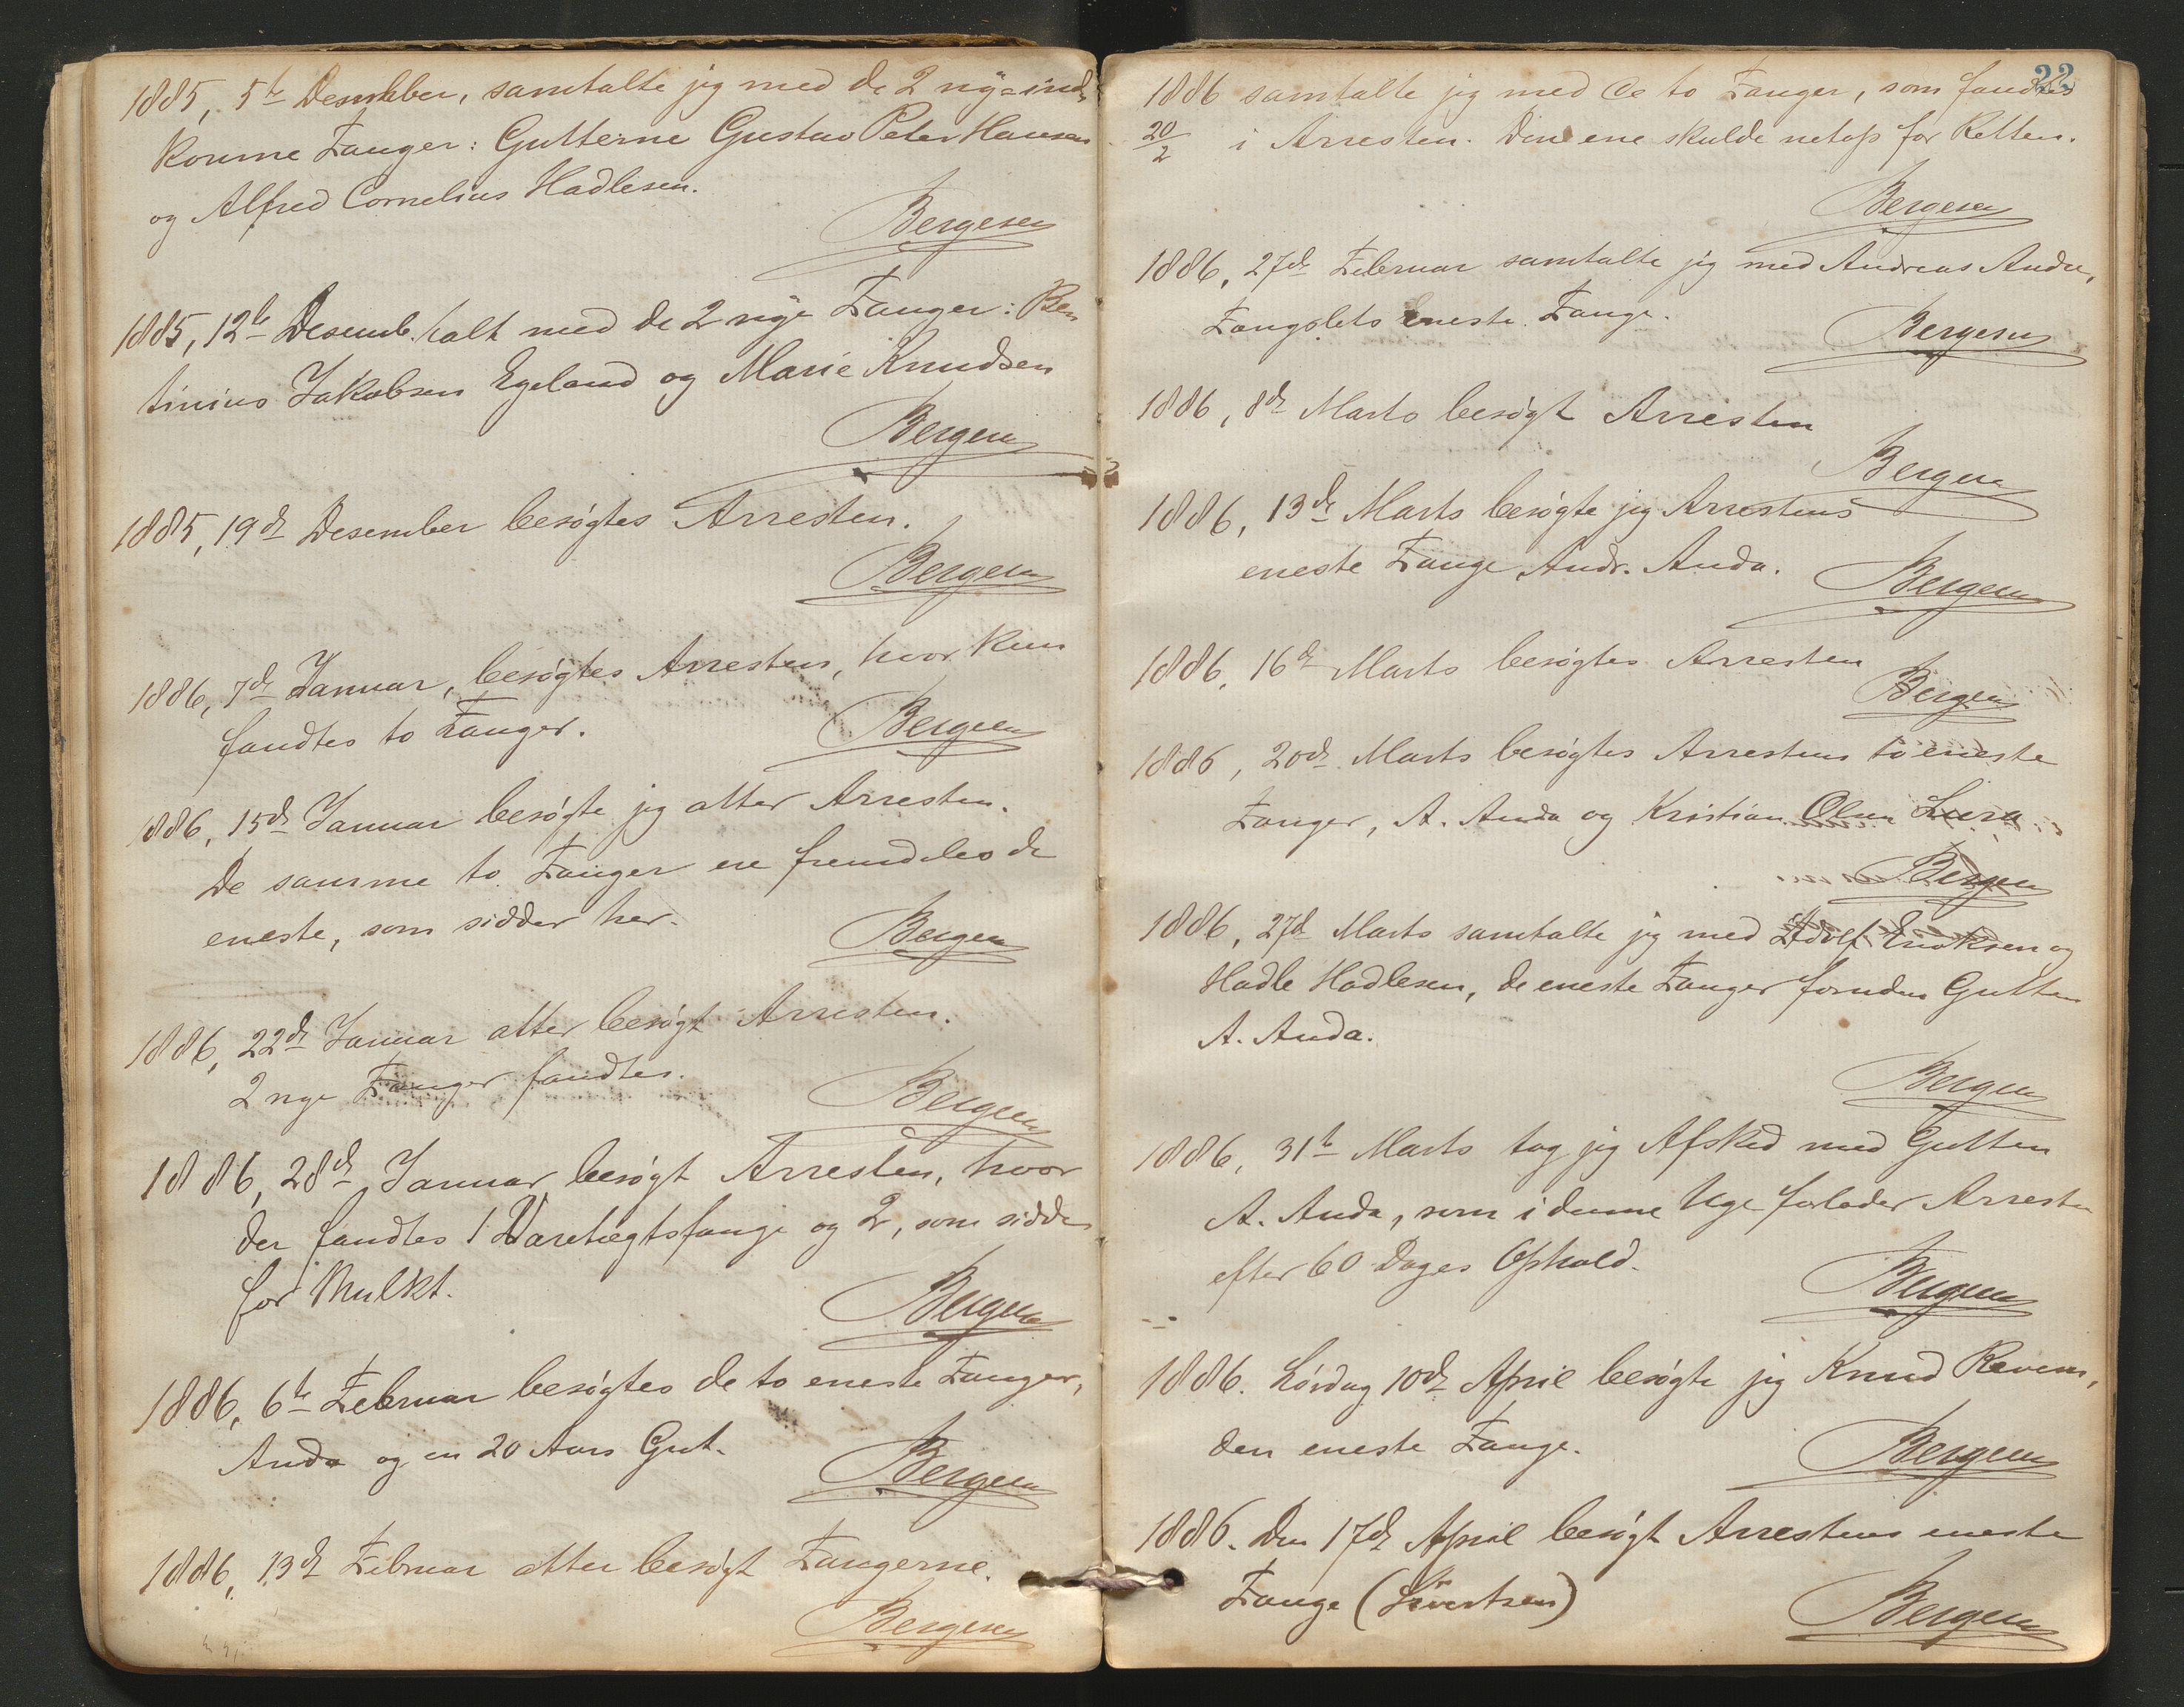 1885, 5te Desember, samtalte jeg med de 2 nye ind-
komne Fanger: Gutterne Gustav Peter Hansen
og Alfred Cornelius Hadlesen.
Bergesen
1885, 12te Desemb. talt med de 2 nye Fanger: Ben
tinius Jakobsen Egeland og Marie Knudsen
Bergesen
1885, 19de Desember besøgtes Arresten.
Bergesen
1886, 7de Januar, besøgtes Arresten, hvor kun
fandtes to Fanger.
Bergesen
1886, 15de Januar besøgte jeg atter Arresten.
De samme to Fanger ere fremdeles de
eneste, som sidder her.
Bergesen
1886, 22de Januar atter besøgt Arresten.
2 nye Fanger fandtes.
Bergesen
1886, 28de Januar besøgt Arresten, hvor
der fandtes 1 Varetægtsfange og 2, som sidder
for Mulkt.
Bergesen
1886, 6te Februar besøgtes de to eneste Fanger,
Anda og en 20 Aars Gut.
Bergesen
1886, 13de Februar atter besøgt Fangerne.
Bergesen
22
1886 samtalte jeg med de to Fanger, som fandtes
20/2 i Arresten. Den ene skulde netop for Retten.
Bergesen
1886, 27de Februar samtalte jeg med Andreas Anda,
Fængslets eneste Fange.
Bergesen
1886, 8de Marts besøgt Arresten
Bergesen
1886, 13de Marts besøgte jeg Arrestens
eneste Fange Andr. Anda.
Bergesen
1886, 16de Marts besøgtes Arresten
Bergesen
1886, 20de Marts besøgtes Arrestens to eneste
Fanger, A. Anda og Kristian Olsen Lura
Bergesen
1886, 27de Marts samtalte jeg med Adolf Enoksen og
Hadle Hadlesen, de eneste Fanger foruden Gutten
A. Anda.
Bergesen
1886, 31te Marts tog jeg Afsked med Gutten
A. Anda, som i denne Uge forlader Arresten
efter 60 Dages Ophold.
Bergesen
1886. Lørdag 10de April besøgte jeg Knud
den eneste Fange.
Bergesen
1886. Den 17de April besøgt Arrestens eneste
Fange (Sivertsen)
Bergesen